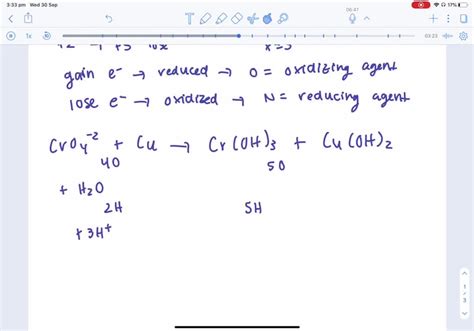 3:33 pm Wed 30 Sep
06:47
17%
1x
03:23
gain e⁻ → reduced → O = oxidizing agent
lose e⁻ → oxidized → N = reducing agent
CrO₄⁻² + Cu → Cr(OH)₃ + Cu(OH)₂
4O 5O
+ H₂O
2H 5H
+ 3H⁺
1
3